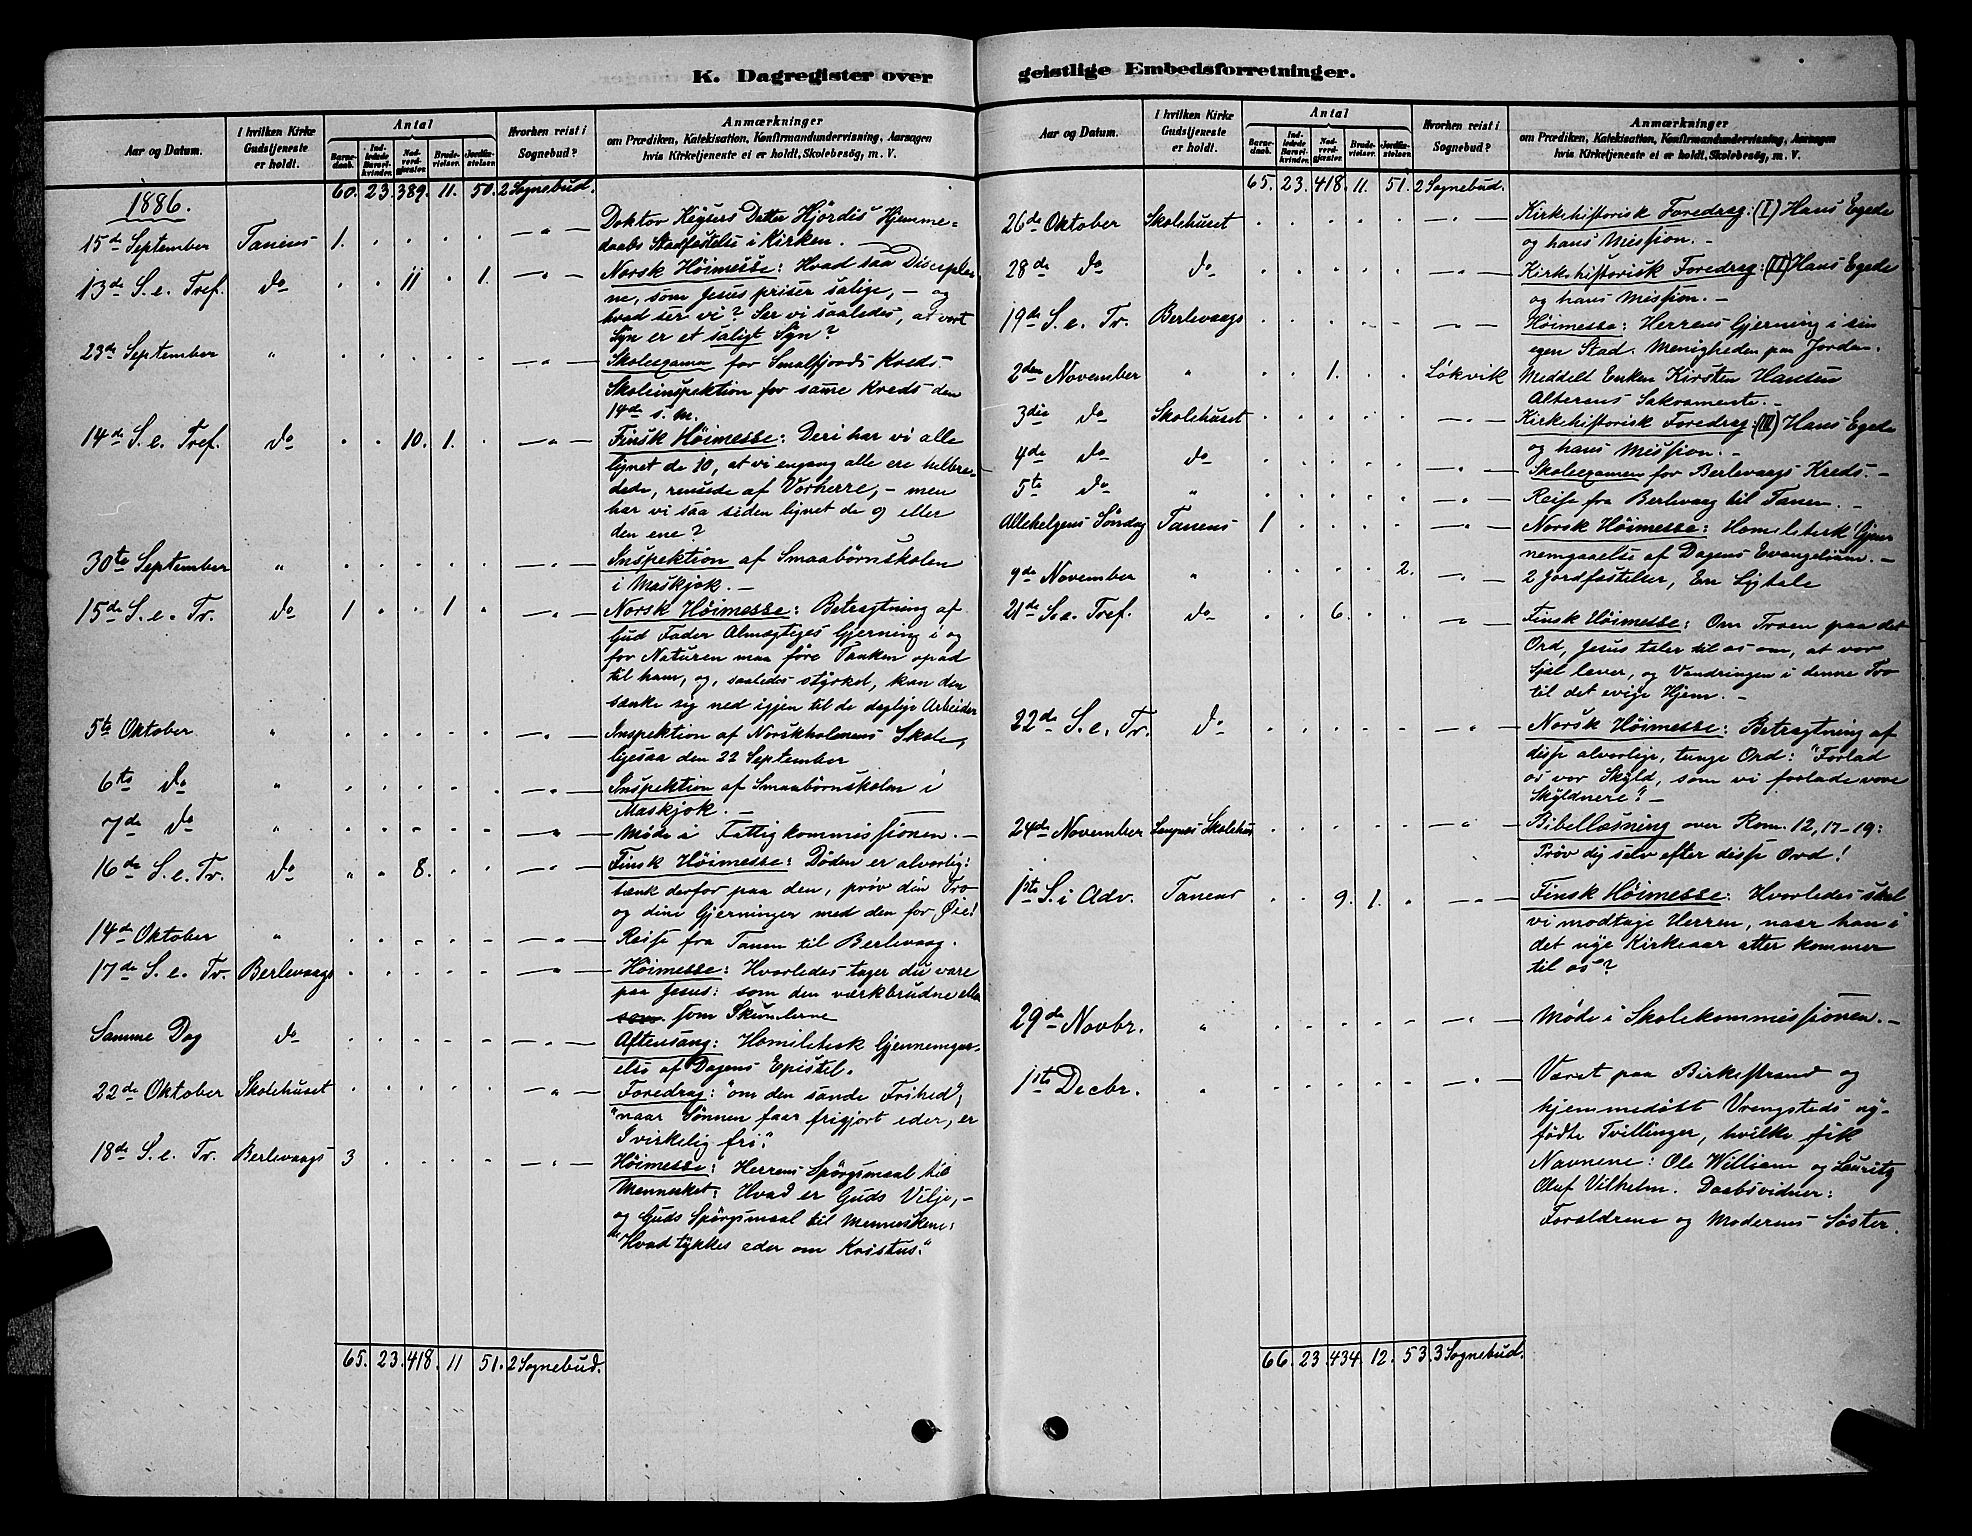 K. Dagregister over
Aar og Datum.
I hvilken Kirke
Gudstjeneste
er holdt.
Antal
Barne-
daab.
Ind-
ledede
Barsel-
kvinder.
Nad-
verd-
gjæster.
Brude-
vielser.
Jordfæ-
stelser.
Hvorhen reist i
Sognebud?
Anmærkninger
om Prædiken, Katekisation, Konfirmandundervisning, Aarsagen
hvis Kirketjeneste ei er holdt, Skolebesög, m. V.
1886. 60. 23. 389. 11. 50. 2 Sognebud.
15de September Tanens 1. Doktor Keysers Datter Hjördis' Hjemme-
daabs Stadfæstelse i Kirken. —
13de S. e. Tref. do 11 1. Norsk Höimesse: Hvad saa Disciplen-
ne, som Jesus priser salige, — og
hvad ser vi? Ser vi saaledes, at vort
Syn er et saligt Syn?
23de September " Skoleexamen for Smalfjords Kreds.
Skoleinspektion for samme Kreds den
14de s. m.
14de S. e. Tref. do 10. 1. Finsk Höimesse: Deri har vi alle
lignet de 10, at vi engang alle ere helbre-
dede, rensede af Vorherre, — men
har vi saa siden lignet de 9 eller
den ene?
30te September " Inspektion af Smaabörnskolen
i Maskjok. —
15de S. e. Tr. do 1 1. Norsk Höimesse: Betragtning af
Gud Fader Almægtiges Gjerning i og
for Naturen maa före Tanken opad
til ham, og, saaledes styrket, kan den
sænke sig ned igjen til de daglige Arbeider
5te Oktober " Inspektion af Norskholmens Skole,
ligesaa den 22 September
6te do " Inspektion af Smaabörnskolen i
Maskjok. —
7de do " Möde i Fattigkommissionen. —
16de S. e. Tr. do 8. Finsk Höimesse: Döden er alvorlig:
tænk derfor paa den, pröv din Tro
og dine Gjerninger med den for Öie!
14de Oktober " Reise fra Tanen til Berlevaag.
17de S. e. Tr. Berlevaags Höimesse: Hvorledes tager du vare
paa Jesus: som den værkbrudne eller
som Skumlerne
Samme Dag do Aftensang: Homiletisk Gjennemgaa-
else af Dagens Epistel.
22de Oktober Skolehuset Foredrag: "om den sande Frihed,"
"naar Sönnen faar frigjort eder, er
I virkelig fri."
18de S. e. Tr. Berlevaags 3 Höimesse: Herrens Spörgsmaal til
Mennesket: Hvad er Guds Vilje, —
og Guds Spörgsmaal til Menneskene:
"Hvad tykkes eder om Kristus."
65. 23. 418. 11 51. 2 Sognebud.
geistlige Embedsforretninger.
Aar og Datum.
I hvilken Kirke
Gudstjeneste
er holdt.
Antal
Barne-
daab.
Ind-
ledede
Barsel-
kvinder.
Nad-
verd-
gjæster.
Brude-
vielser.
Jordfæ-
stelser.
Hvorhen reist i
Sognebud?
Anmærkninger
om Prædiken, Katekisation, Konfirmandundervisning, Aarsagen
hvis Kirketjeneste ei er holdt, Skolebesög, m. V.
65. 23. 418. 11. 51. 2 Sognebud.
26de Oktober Skolehuset Kirkehistorisk Foredrag: (I) Hans Egede
og hans Mission. —
28de do do Kirkehistorisk Foredrag: (II) Hans Egede
og hans Mission. —
19de S. e. Tr. Berlevaags Höimesse: Herrens Gjerning i sin
egen Stad. Menigheden paa Jorden.
2den November " 1. Lökvik Meddelt Enken Kirsten Hansen
Alterens Sakramente. —
3die do Skolehuset Kirkehistorisk Foredrag: (III) Hans Egede
og hans Mission. —
4de do do Skoleexamen for Berlevaags Kreds. —
5te do " Reise fra Berlevaag til Tanen. —
Allehelgens Söndag Tanens 1 Norsk Höimesse: Homiletisk Gjen-
nemgaaelse af Dagens Evangelium. —
9de November " 2. 2 Jordfæstelser, En Ligtale
21de S. e. Tref. do 6. Finsk Höimesse: Om Troen paa det
Ord, Jesus taler til os om, at vor
Sjæl lever, og Vandringen i denne Tro
til det evige Hjem. —
22de S. e. Tr. do Norsk Höimesse: Betragtning af
disse alvorlige, tunge Ord: "Forlad
os vor Skyld, som vi forlade vore
Skyldnere". —
24de November Langnes Skolehus Bibellæsning over Rom. 12, 17-19:
Pröv dig selv efter disse Ord!
1ste S. i Adv. Tanens 9. 1. Finsk Höimesse: Hvorledes skal
vi modtage Herren, naar han i
det nye Kirkeaar atter kommer
til os?
29de Novbr. " Möde i Skolekommissionen. —
1ste Decbr. " Været paa Birkestrand og
hjemmedöbt Vrengsteds ny-
födte Tvillinger, hvilke fik
Navnene: Ole William og Lauritz
Oluf Vilhelm. Daabsvidner:
Forældrene og Moderens Söster.
66. 23. 434. 12. 53. 3 Sognebud.